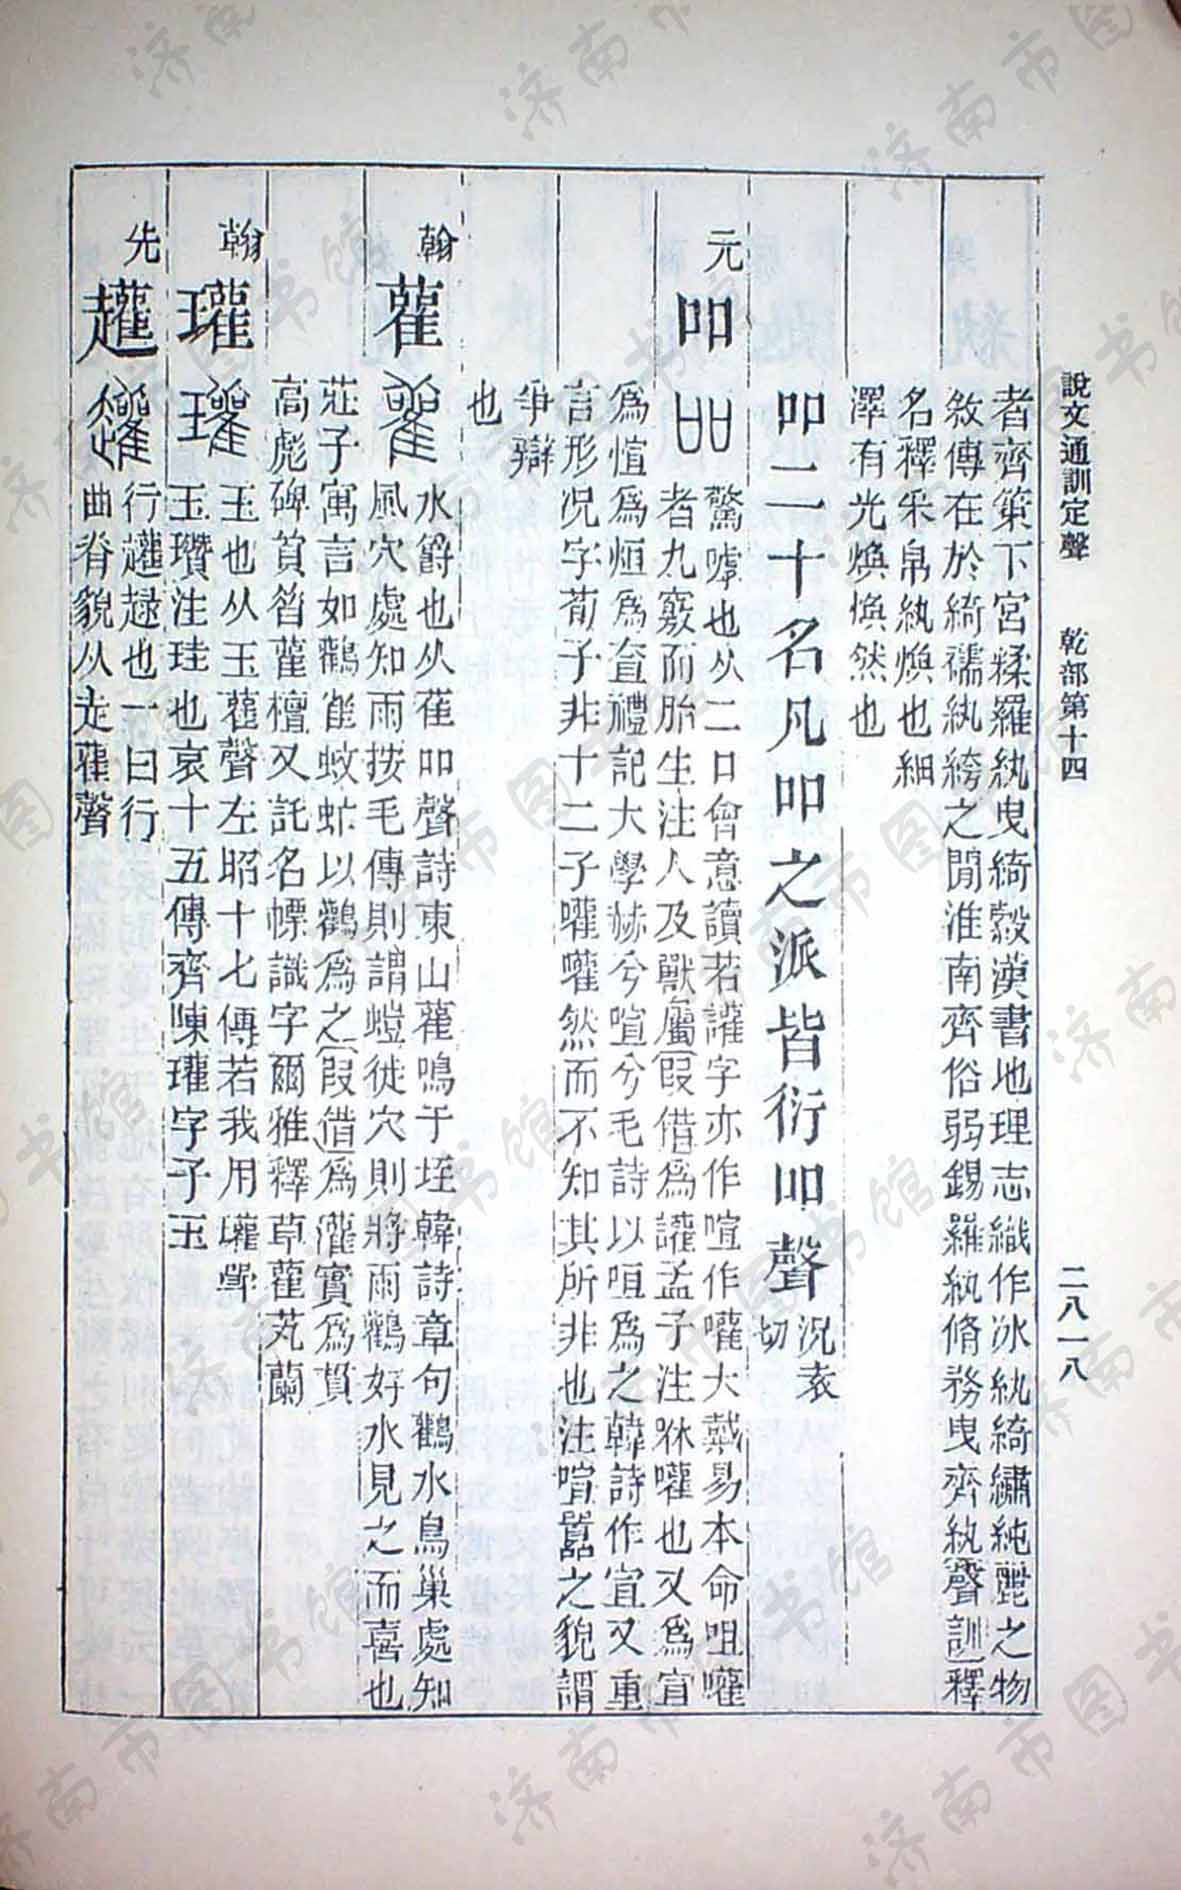 說文通訓定聲　乾部第十四　二八一八
者齊第下宮糅羅紈曳綺縠漢書地理志織作冰紈綺繡純麗之物
敘傳在於綺襦紈絝之閒淮南齊俗弱錫羅紈脩務曳齊紈聲訓釋
名釋采帛紈煥也細
澤有光煥煥然也
吅二十名凡吅之派皆衍吅聲況袁切
元
吅
驚嘑也从二口會意讀若讙字亦作喧作嚾大戴易本命咀嚾
者九竅而胎生注人及獸屬叚借爲讙孟子注呹嚾也又爲宣
爲愃爲烜爲奆禮記大學赫兮喧兮毛詩以咺爲之韓詩作宣又重
言形況字荀子非十二子嚾嚾然而不知其所非也注喧囂之貌謂
爭辯
也
翰
雚
水爵也从萑吅聲詩東山雚鳴于垤韓詩章句鸛水鳥巢處知
風穴處知雨按毛傳則謂螘徙穴則將雨鸛好水見之而喜也
莊子寓言如鸛雀蚊虻以鸛爲之叚借爲灌實爲貫
高彪碑首雚檀又託名幖識字爾雅釋草雚芄蘭
翰
瓘
玉也从玉雚聲左昭十七傳若我用瓘斝
玉瓚注珪也哀十五傳齊陳瓘字子玉
先
趯
行趯趢也一曰行
曲脊貌从走雚聲